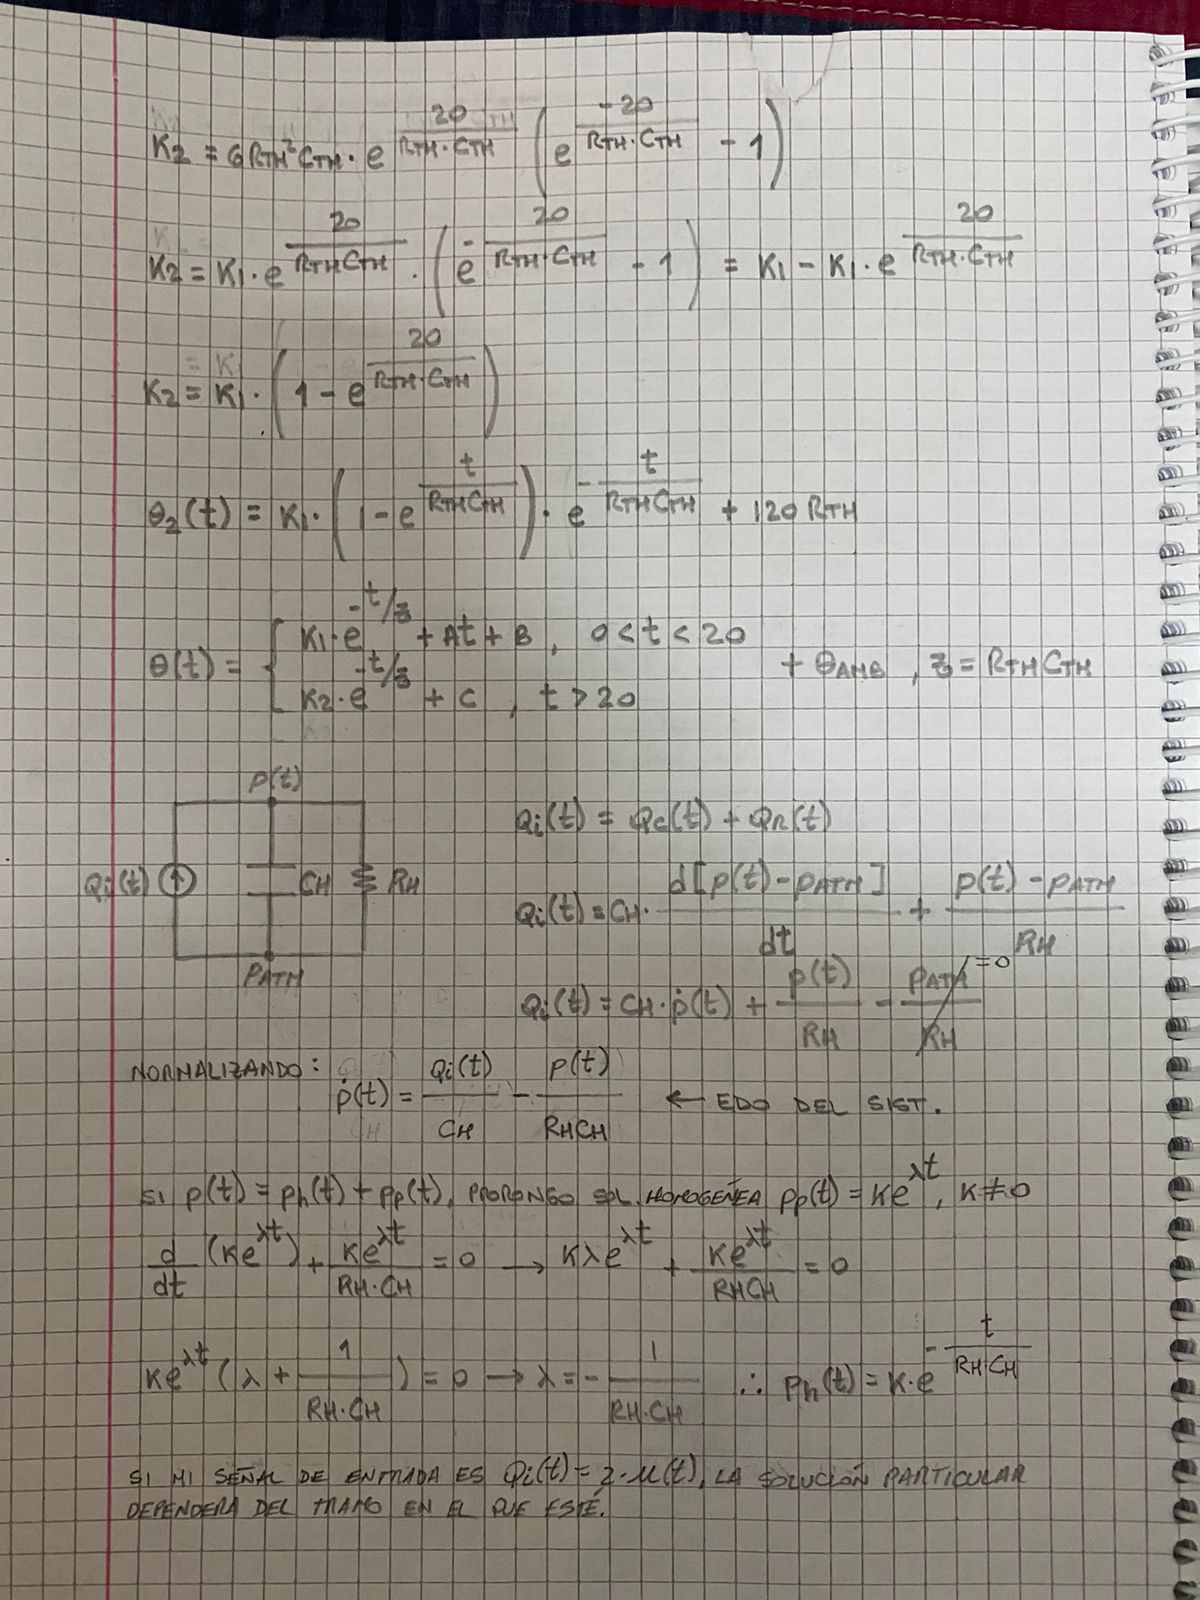 K2 = 6RTH²CTH · e^(20/(RTH·CTH)) (e^(-20/(RTH·CTH)) - 1)
K2 = K1 · e^(20/(RTHCTH)) · (e^(-20/(RTH·CTH)) - 1) = K1 - K1 · e^(20/(RTH·CTH))
K2 = K1 · (1 - e^(20/(RTH·CTH)))
θ2(t) = K1 · (1 - e^(t/(RTHCTH))) · e^(-t/(RTHCTH)) + 120 RTH
θ(t) = { K1·e^(-t/z) + At + B, 0 < t < 20
K2·e^(-t/z) + C, t > 20
+ θAMB, z = RTHCTH
p(t)
Qi(t) CH RH
PATM
Qi(t) = QC(t) + QR(t)
Qi(t) = CH · d[p(t) - PATM]/dt + (p(t) - PATM)/RH
Qi(t) = CH · ṗ(t) + p(t)/RH - PATM/RH =0
NORMALIZANDO: ṗ(t) = Qi(t)/CH - p(t)/(RHCH) ← EDO DEL SIST.
SI p(t) = ph(t) + pp(t), PROPONGO SOL. HOMOGEÑEA pp(t) = Ke^(λt), K≠0
d/dt (Ke^(λt)) + Ke^(λt)/(RH·CH) = 0 → Kλe^(λt) + Ke^(λt)/(RHCH) = 0
Ke^(λt) (λ + 1/(RH·CH)) = 0 → λ = - 1/(RH·CH) ∴ ph(t) = K·e^(-t/(RH·CH))
SI MI SEÑAL DE ENTRADA ES Qi(t) = 2·μ(t), LA SOLUCIÓN PARTICULAR
DEPENDERA DEL TRAMO EN EL QUE ESTÉ.